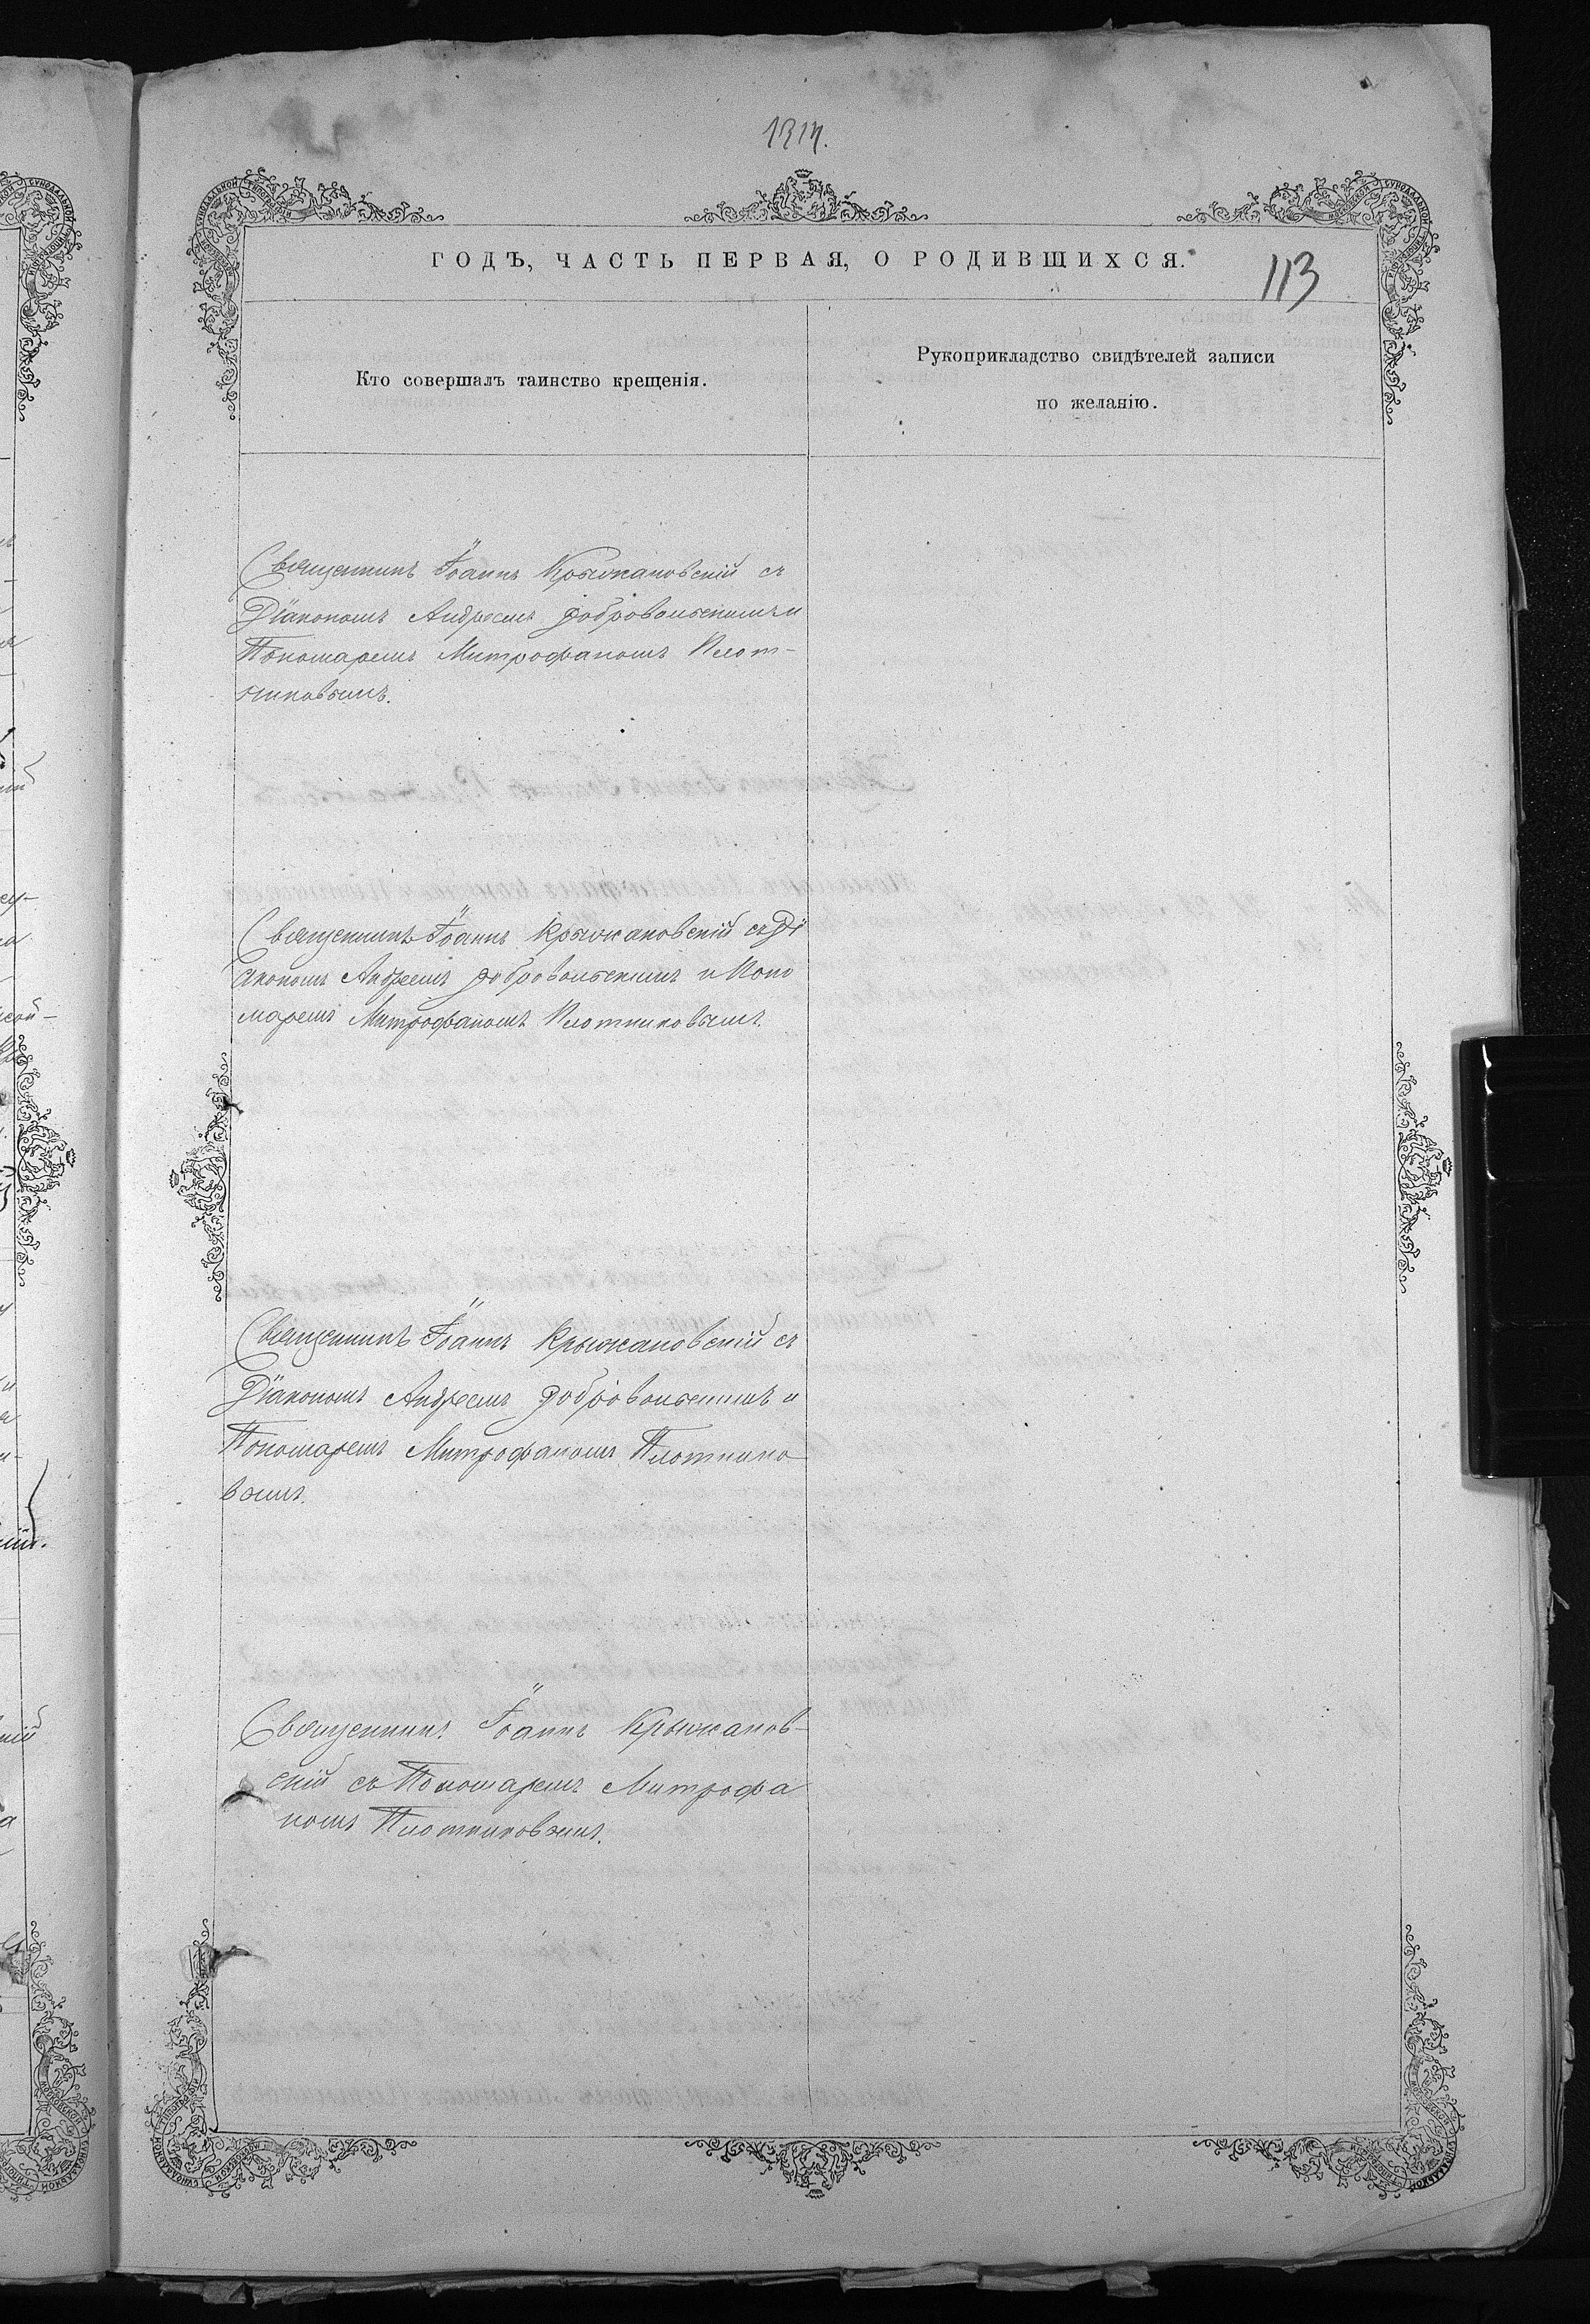 ГОДЪ, ЧАСТЬ ПЕРВАЯ, О РОДИВШИХСЯ.
113
Кто совершалъ таинство крещенія.
Рукоприкладство свидѣтелей записи
по желанію.
Священникъ Іоаннъ Крыжановскій съ
Діакономъ Андреемъ Добровольскимъ и
Пономаремъ Митрофаномъ Плот-
никовымъ.
Священникъ Іоаннъ Крыжановскій съ Ді
акономъ Андреемъ Добровольскимъ и Поно
маремъ Митрофаномъ Плотниковымъ.
Священникъ Іоаннъ Крыжановскій съ
Діакономъ Андреемъ Добровольскимъ и
Пономаремъ Митрофаномъ Плотнико
вымъ.
Священникъ Іоаннъ Крыжанов-
скій съ Пономаремъ Митрофа
номъ Плотниковымъ.